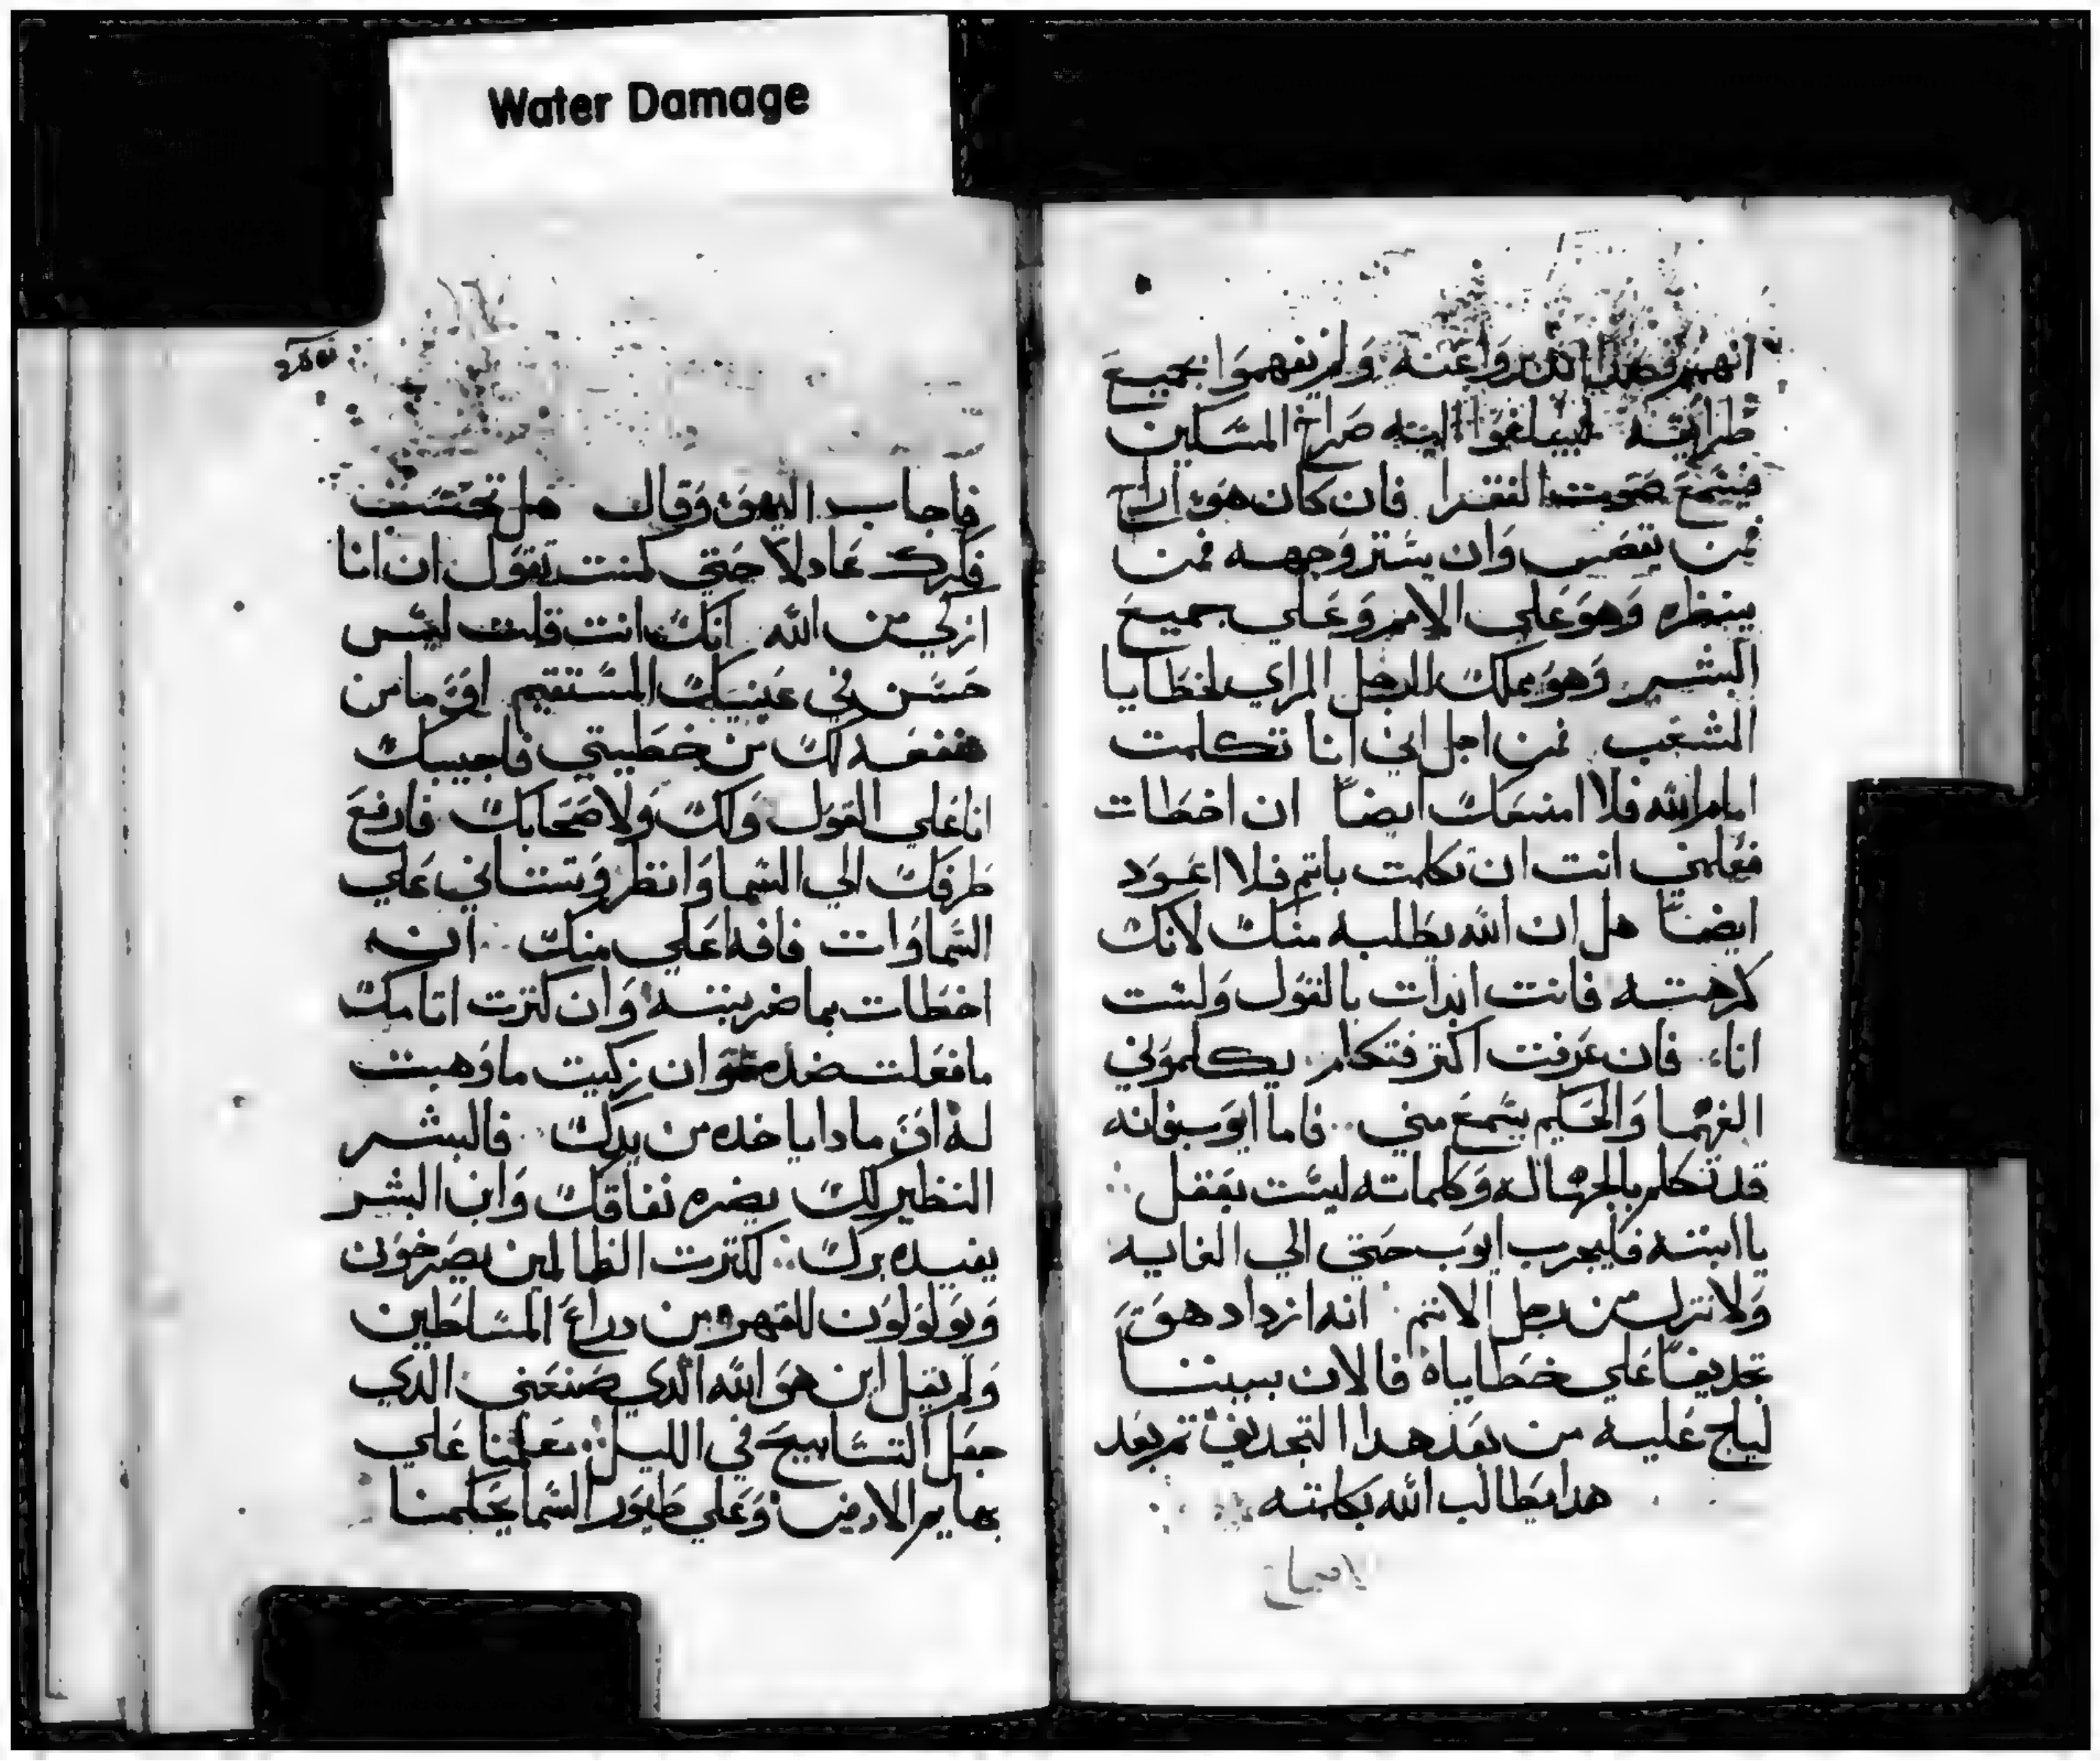 Water Damage
انهم قصدا الذين رواغنه ولم يفهموا بجميع
طرايقه ليبلغوا اليه صراخ المسكين
فيسمع صوت الفقرا فان كان هو اراح
فمن يقصي وان يستر وجهه فمن
ينظره وهو علي الامم وعلي جميع
البشر وهو يملك الرجل المراي لخطايا
الشعب فمن اجل اني انا تكلمت
امام الله فلا امنعك ايضا ان اخطات
فعلمني انت ان تكلمت باتم فلا اعود
ايضا هل ان الله يطلبه منك لانك
كرهته فانت ابدات بالقول ولست
انا فان عرفت اكتر فتكلم يكلموني
الفهما والحكيم يسمع مني فاما ايوب فانه
قد تكلم بالجهاله وكلماته ليست بعقل
يا ابته فليجرب ايوب حتي الي الغايه
ولا تزل من رجل الاتم انه ازداد هو
تجديفا علي خطاياه فالان بيننا
ليلج عليه من بعد هدا التجديف تم بعد
هدا يطالب الله بكلمته
فاجاب اليهو وقال هل تحتسب
فكرك عادلا حتي كنت تقول ان انا
ازكي من الله انك انت قلت ليس
حسن في عينيك المستقيم اوَ ما من
منفعه لك من خطيتي فاجيبك
انا علي القول ولك ولاصحابك فارفع
طرفك الي السما وانظر وتستاني علي
السماوات فافه اعلي منك ان
اخطات بما ضريته وان كترت اتامك
ما فعلت ضده وان زكيت ما وهبت
له او ما دا ياخده من يدك فالبشر
النظير لك يضره نفاقك وابن البشر
يفيده برك لكترت الظالمين يصرخون
ويولولون للقهر من دراع المسلطين
ولم يقل اين هو الله الدي صنعني الدي
جعل التسابيح في الليل يعلمنا علي
بهايم الارض وعلي طيور السما يحكمنا